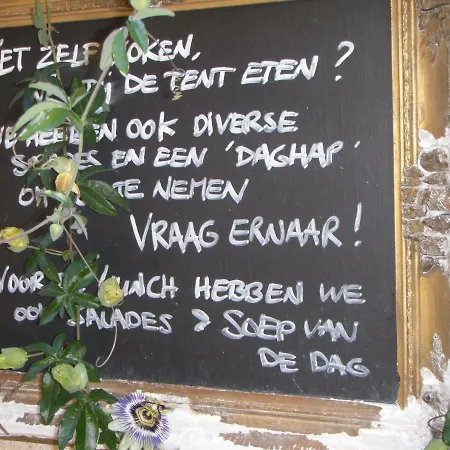 ZELF KOKEN,
DE TENT ETEN?
HEBBEN OOK DIVERSE
EN EEN 'DAGHAP'
TE NEMEN
VRAAG ERNAAR!
VOOR LUNCH HEBBEN WE
OOK SALADES > SOEP VAN
DE DAG